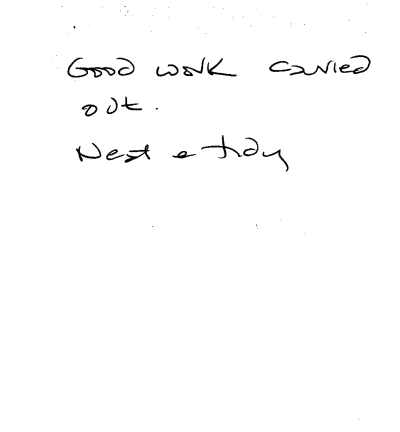 Good work carried
out.
Neat & tidy